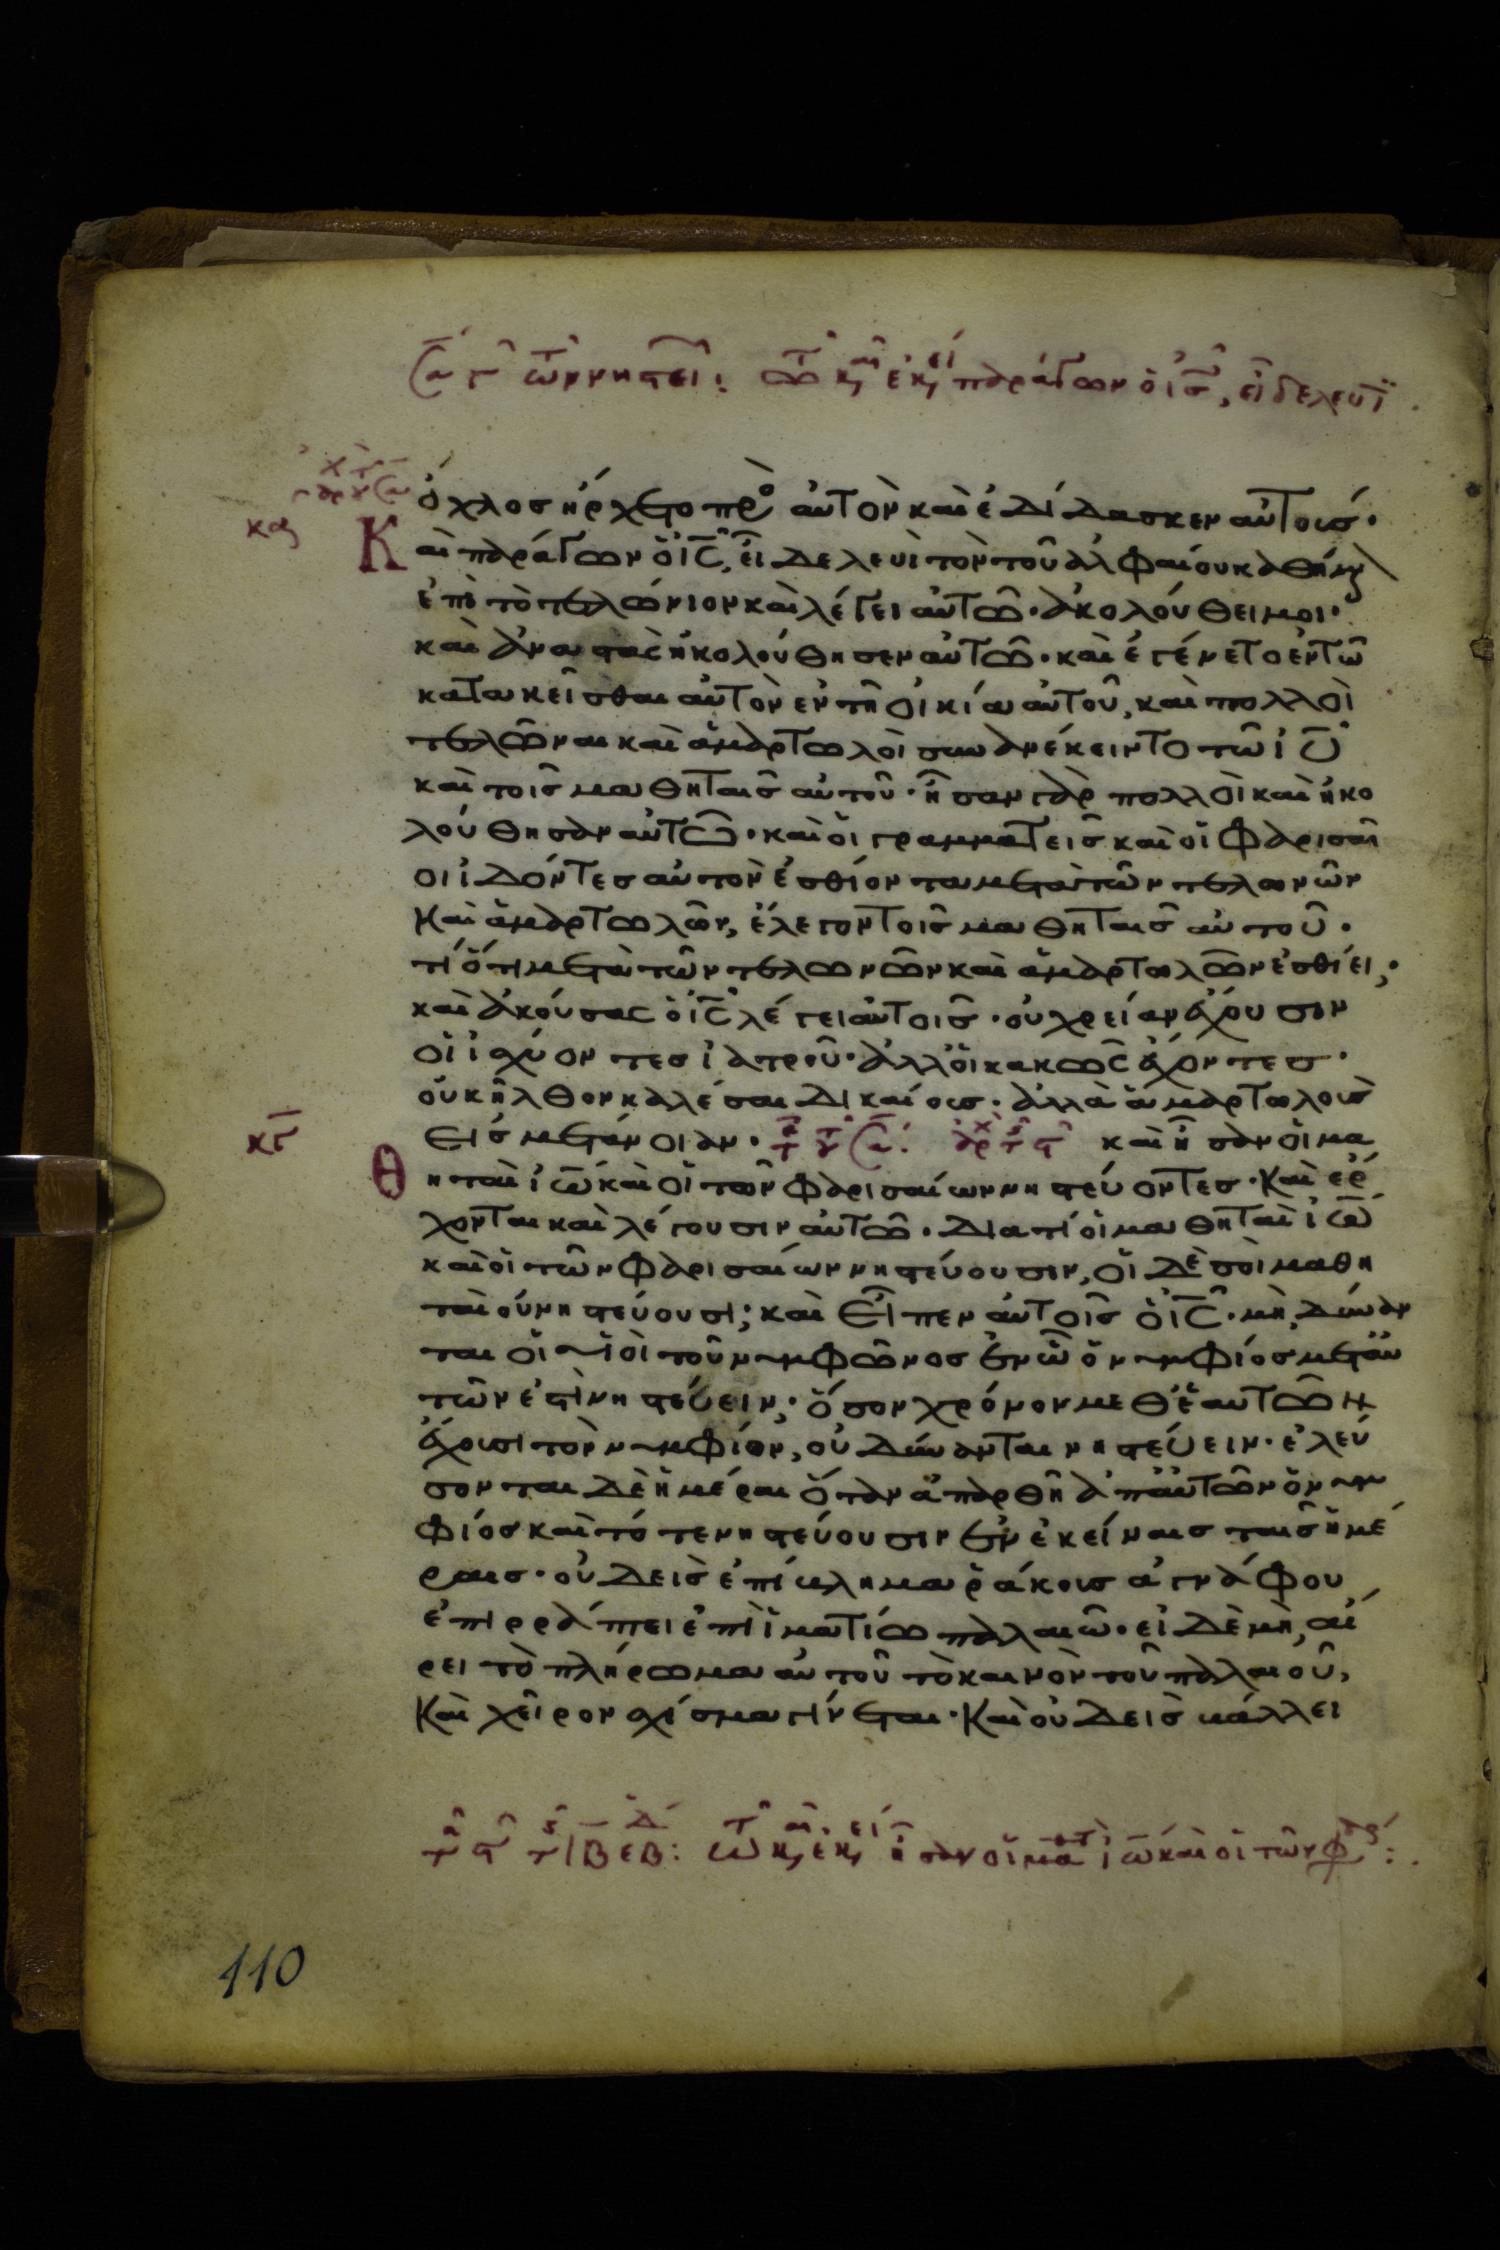 ὄχλοσ ἠρχετο πρὸ αὐτὸν καὶ ἐδίδασκεν αὐτούσ·
Καὶ παράγων ὁ ις, εἶδε λευὶ τὸν τοῦ ἀλφαίου καθήμ
ἐπὶ τὸ τελώνιον καὶ λέγει αὐτῶ· ἀκολούθει μοι·
καὶ ἀναστὰς ἠκολούθησεν αὐτῶ· καὶ ἐγένετο ἐν τῶ
κατακεῖσθαι αὐτὸν ἐν τῆ οἰκία αὐτοῦ, καὶ πολλοὶ
τελῶναι καὶ ἁμαρτωλοὶ συνανέκειντο τῶ ιυ
καὶ τοῖσ μαθηταῖσ αὐτοῦ· ἦσαν γὰρ πολλοὶ καὶ ἠκο
λούθησαν αὐτῶ· καὶ οἱ γραμματεῖσ καὶ οἱ φαρισαῖ
οι ἰδόντεσ αὐτὸν ἐσθίοντα μετὰ τῶν τελωνῶν
καὶ ἁμαρτωλῶν, ἔλεγον τοῖσ μαθηταῖσ αὐτοῦ·
τί ὅτι μετὰ τῶν τελωνῶν καὶ ἁμαρτωλῶν ἐσθίει;
καὶ ἀκούσας ὁ ις λέγει αὐτοῖσ· οὐ χρείαν ἔχουσιν
οἱ ἰσχύοντεσ ἰατροῦ· ἀλλ' οἱ κακῶς ἔχοντεσ·
οὐκ ἦλθον καλέσαι δικαίουσ· ἀλλὰ ἁμαρτωλοὺσ
εἰσ μετάνοιαν· καὶ ἦσαν οἱ μα
Θηταὶ ιω καὶ οἱ τῶν φαρισαίων νηστεύοντεσ· καὶ ἔρ
χονται καὶ λέγουσιν αὐτῶ· διατί οἱ μαθηταὶ ιω
καὶ οἱ τῶν φαρισαίων νηστεύουσιν, οἱ δὲ σοὶ μαθη
ταὶ οὐ νηστεύουσι; καὶ εἶπεν αὐτοῖσ ὁ ις· μὴ δύναν
ται οἱ υἱοὶ τοῦ νυμφῶνοσ ἐν ὧ ὁ νυμφίοσ μετ' αὐ
τῶν ἐστὶ νηστεύειν; ὅσον χρόνον μεθ' ἑαυτῶν
ἔχουσι τὸν νυμφίον, οὐ δύνανται νηστεύειν· ἐλεύ
σονται δὲ ἡμέραι ὅταν ἀπαρθῆ ἀπ' αὐτῶν ὁ νυμ
φίοσ καὶ τότε νηστεύουσιν ἐν ἐκείναισ ταῖσ ἡμέ
ραισ· οὐδεὶσ ἐπίβλημα ῥάκουσ ἀγνάφου
ἐπιρράπτει ἐπὶ ἱματίω παλαιῶ· εἰ δὲ μὴ, αἴ
ρει τὸ πλήρωμα αὐτοῦ τὸ καινὸν τοῦ παλαιοῦ,
καὶ χεῖρον σχίσμα γίνεται· καὶ οὐδεὶσ βάλλει
110